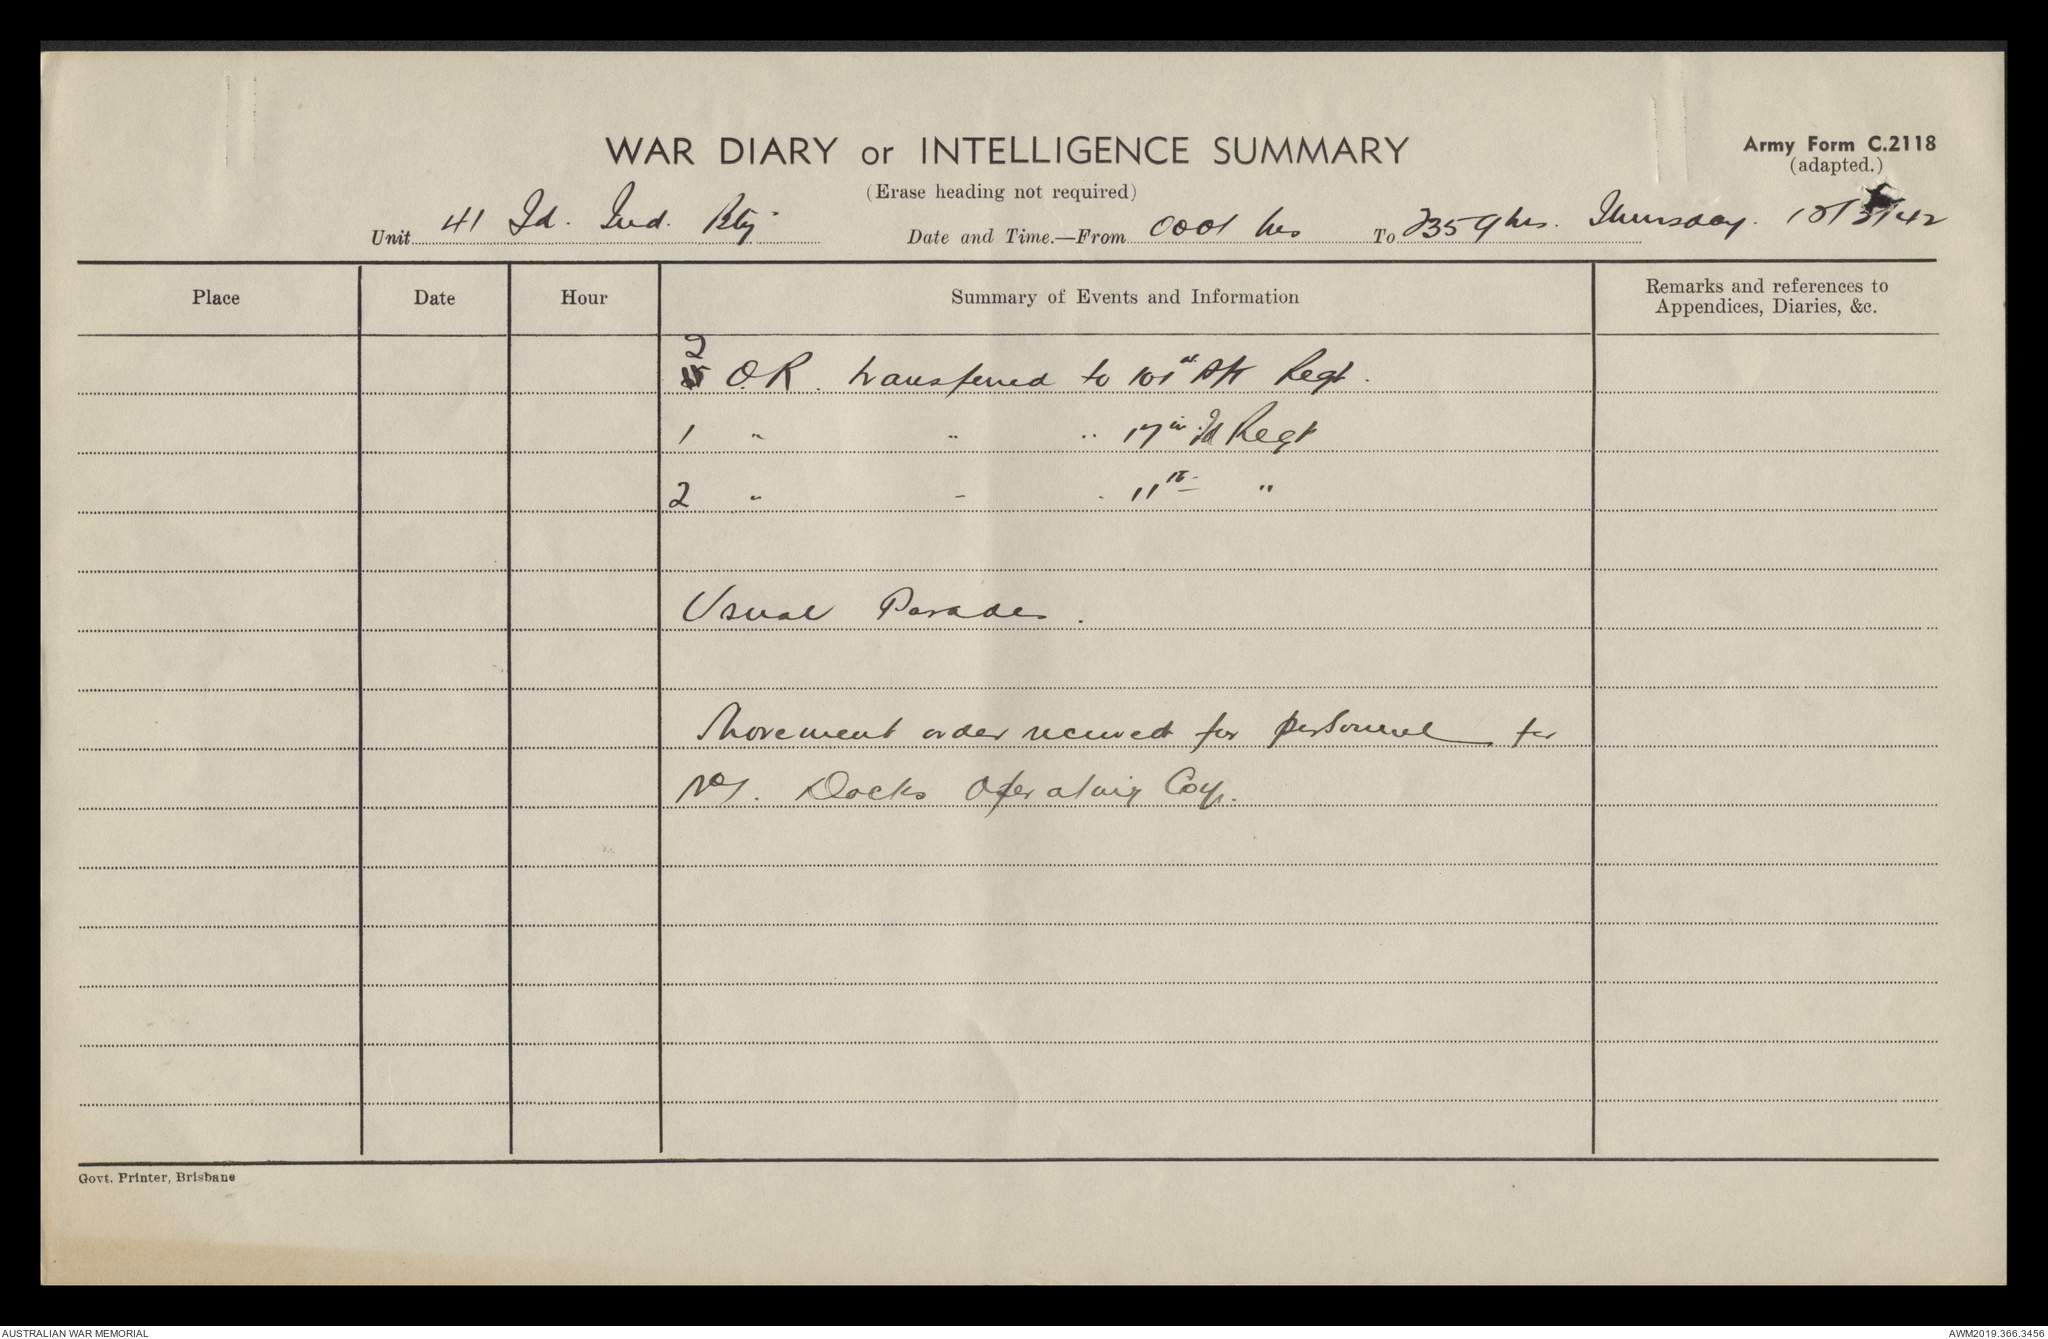 WAR DIARY or INTELLIGENCE SUMMARY
Army Form C.2118
(adapted.)
(Erase heading not required)
Unit 41 Fd. Ind. Bty. Date and Time.—From 0001 hrs To 2359 hrs. Thursday. 12/3/42
Place Date Hour Summary of Events and Information Remarks and references to
Appendices, Diaries, &c.
2
O.R. transferred to 101st A/T Regt.
1 " " " 17th Fd Regt
2 " " " 11th "
Usual Parades.
Movement order received for personnel for
No 1. Docks Operating Coy.
Govt. Printer, Brisbane
AUSTRALIAN WAR MEMORIAL
AWM2019.366.3456